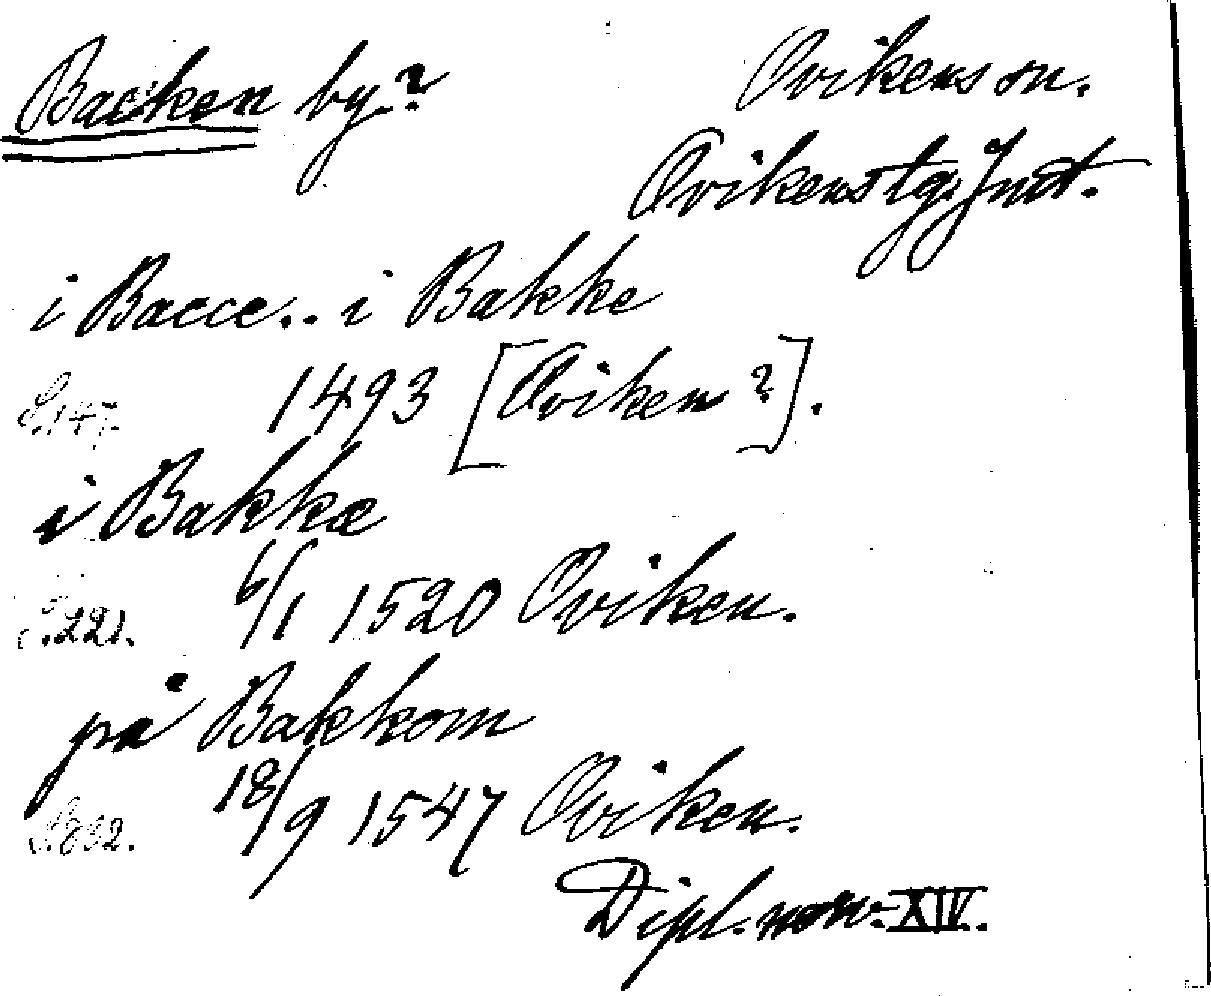 Backen by? Ovikens sn.
Ovikens tg. Jmt.
i Bacce.. i Bakke
S. 147. 1493 [Oviken?].
i Bakkæ
S. 221. 6/1 1520 Oviken.
på Bakkom
18/9 1547 Oviken.
Dipl. norv. XIV.